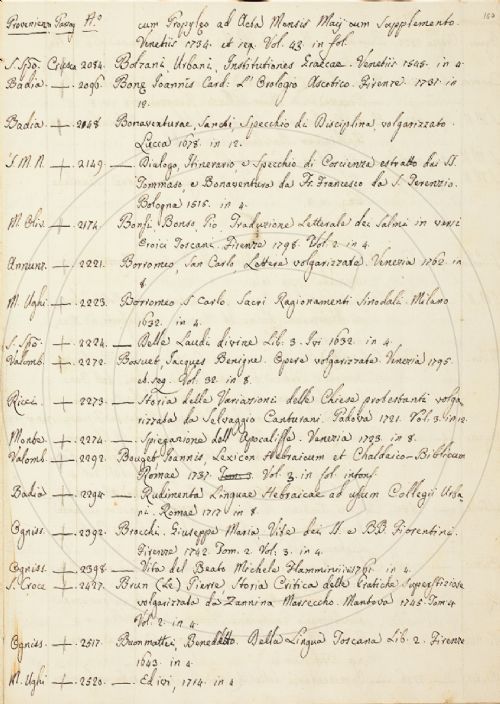 Provenienza Passag. N.o 150
cum Propyleo ad Acta Mensis Maij cum Supplemento.
Venetiis 1734. et seq. Vol. 43. in fol.
S. Spo. Crusca 2084. Bolzani, Urbani, Institutiones Graecae. Venetiis 1545. in 4.
Badia. + 2096. Bona Joannis Card: L' Orologio Ascetico. Firenze. 1737. in
12.
Badia + 2148 Bonaventurae, Sancti, Specchio di Disciplina, volgarizzato.
Lucca 1678. in 12.
S. M. N. + 2149. — Dialogo, Itinerario, e Specchio di Coscienza estratto dai SS.
Tommaso, e Bonaventura da Fr. Francesco da S. Terenzio.
Bologna 1515. in 4.
M. Oliv. + 2174. Bonsi, Bonso, Pio, Traduzione Letterale dei Salmi in versi
Eroici Toscani. Firenze 1798. Vol. 2. in 4.
Annunz. + 2221. Borromeo, San Carlo, Lettere volgarizzate. Venezia 1762. in
8.
M. Ughi + 2223. Borromeo S. Carlo. Sacri Ragionamenti Sinodali. Milano
1632. in 4.
S. Spo. + 2224. — Delle Laudi divine Lib. 3. Ivi 1632. in 4.
Valomb. + 2272. Bossuet, Jacques Benigne. Opere volgarizzate. Venezia 1795.
et. seg. Vol. 32. in 8.
Ricci + 2273 — Storia delle Variazioni delle Chiese protestanti volga
rizzata da Selvaggio Canturani. Padova 1721. Vol. 3. in 12.
Monte. + 2274. — Spiegazione dell' Apocalisse. Venezia 1723. in 8.
Valomb. + 2292. Bouget Joannis, Lexicon Hebraicum et Chaldaico-Biblicum
Romae 1737. Tom. 3. Vol. 3. in fol. intons.
Badia + 2294. — Rudimenta Linguae Hebraicae ad usum Collegii Urba
ni. Romae 1717. in 8.
Ogniss. + 2392. Brocchi. Giuseppe Maria. Vite dei SS. e BB. Fiorentini.
Firenze 1742. Tom. 2. Vol. 3. in 4.
Ogniss. + 2398 — Vita del Beato Michele Flammini 1761. in 4.
S. Croce + 2427. Brun (Le) Pierre, Storia Critica delle Pratiche Superstiziose
volgarizzata da Zannino Marsecco. Mantova 1745. Tom 4.
Vol. 2. in 4.
Ogniss. + 2517. Buonmattei, Benedetto. Della Lingua Toscana Lib. 2. Firenze
1643. in 4.
M. Ughi + 2520. — Ed ivi, 1714. in 4